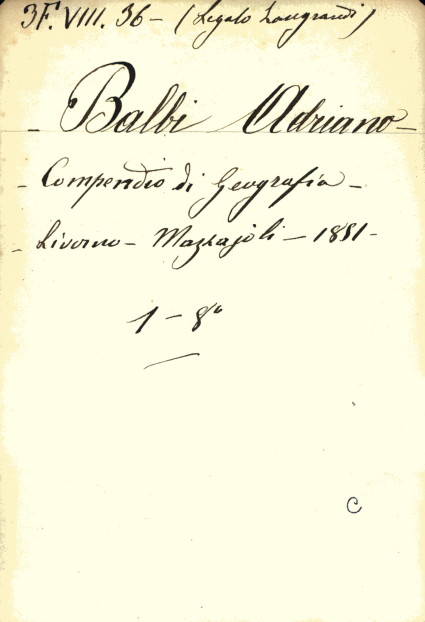 3F. VIII. 36 - (Legato Zangrandi)
- Balbi Adriano -
- Compendio di Geografia -
- Livorno - Mazzajoli - 1851 -
1 - 8°
C